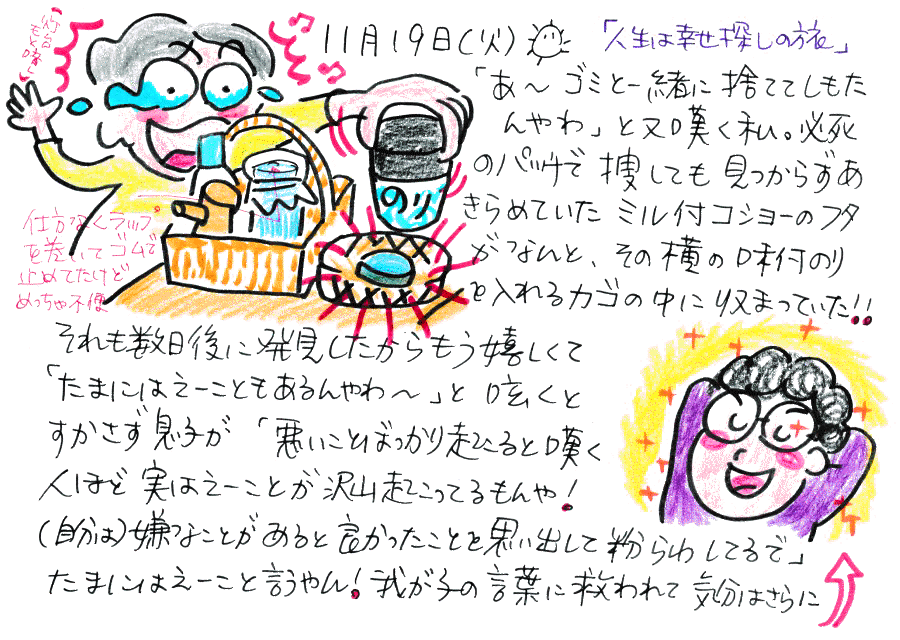 11月19日(火)
「人生は幸せ探しの旅」
「あ～ゴミと一緒に捨ててしもた
んやわ」と又嘆く私。必死
のパッチで捜しても見つからずあ
きらめていたミル付コショーのフタ
がなんと、その横の味付のり
を入れるカゴの中に収まっていた!!
のり
仕方なくラップ
を巻いてゴムで
止めてたけど
めっちゃ不便
それも数日後に発見したからもう嬉しくて
「たまにはえーこともあるんやわ～」と呟くと
すかさず息子が「悪いことばっかり起こると嘆く
人ほど実はえーことが沢山起こってるもんや!
(自分は)嫌なことがあると良かったことを思い出して紛らわしてるで」
たまにはえーこと言うやん!我が子の言葉に救われて気分はさらに